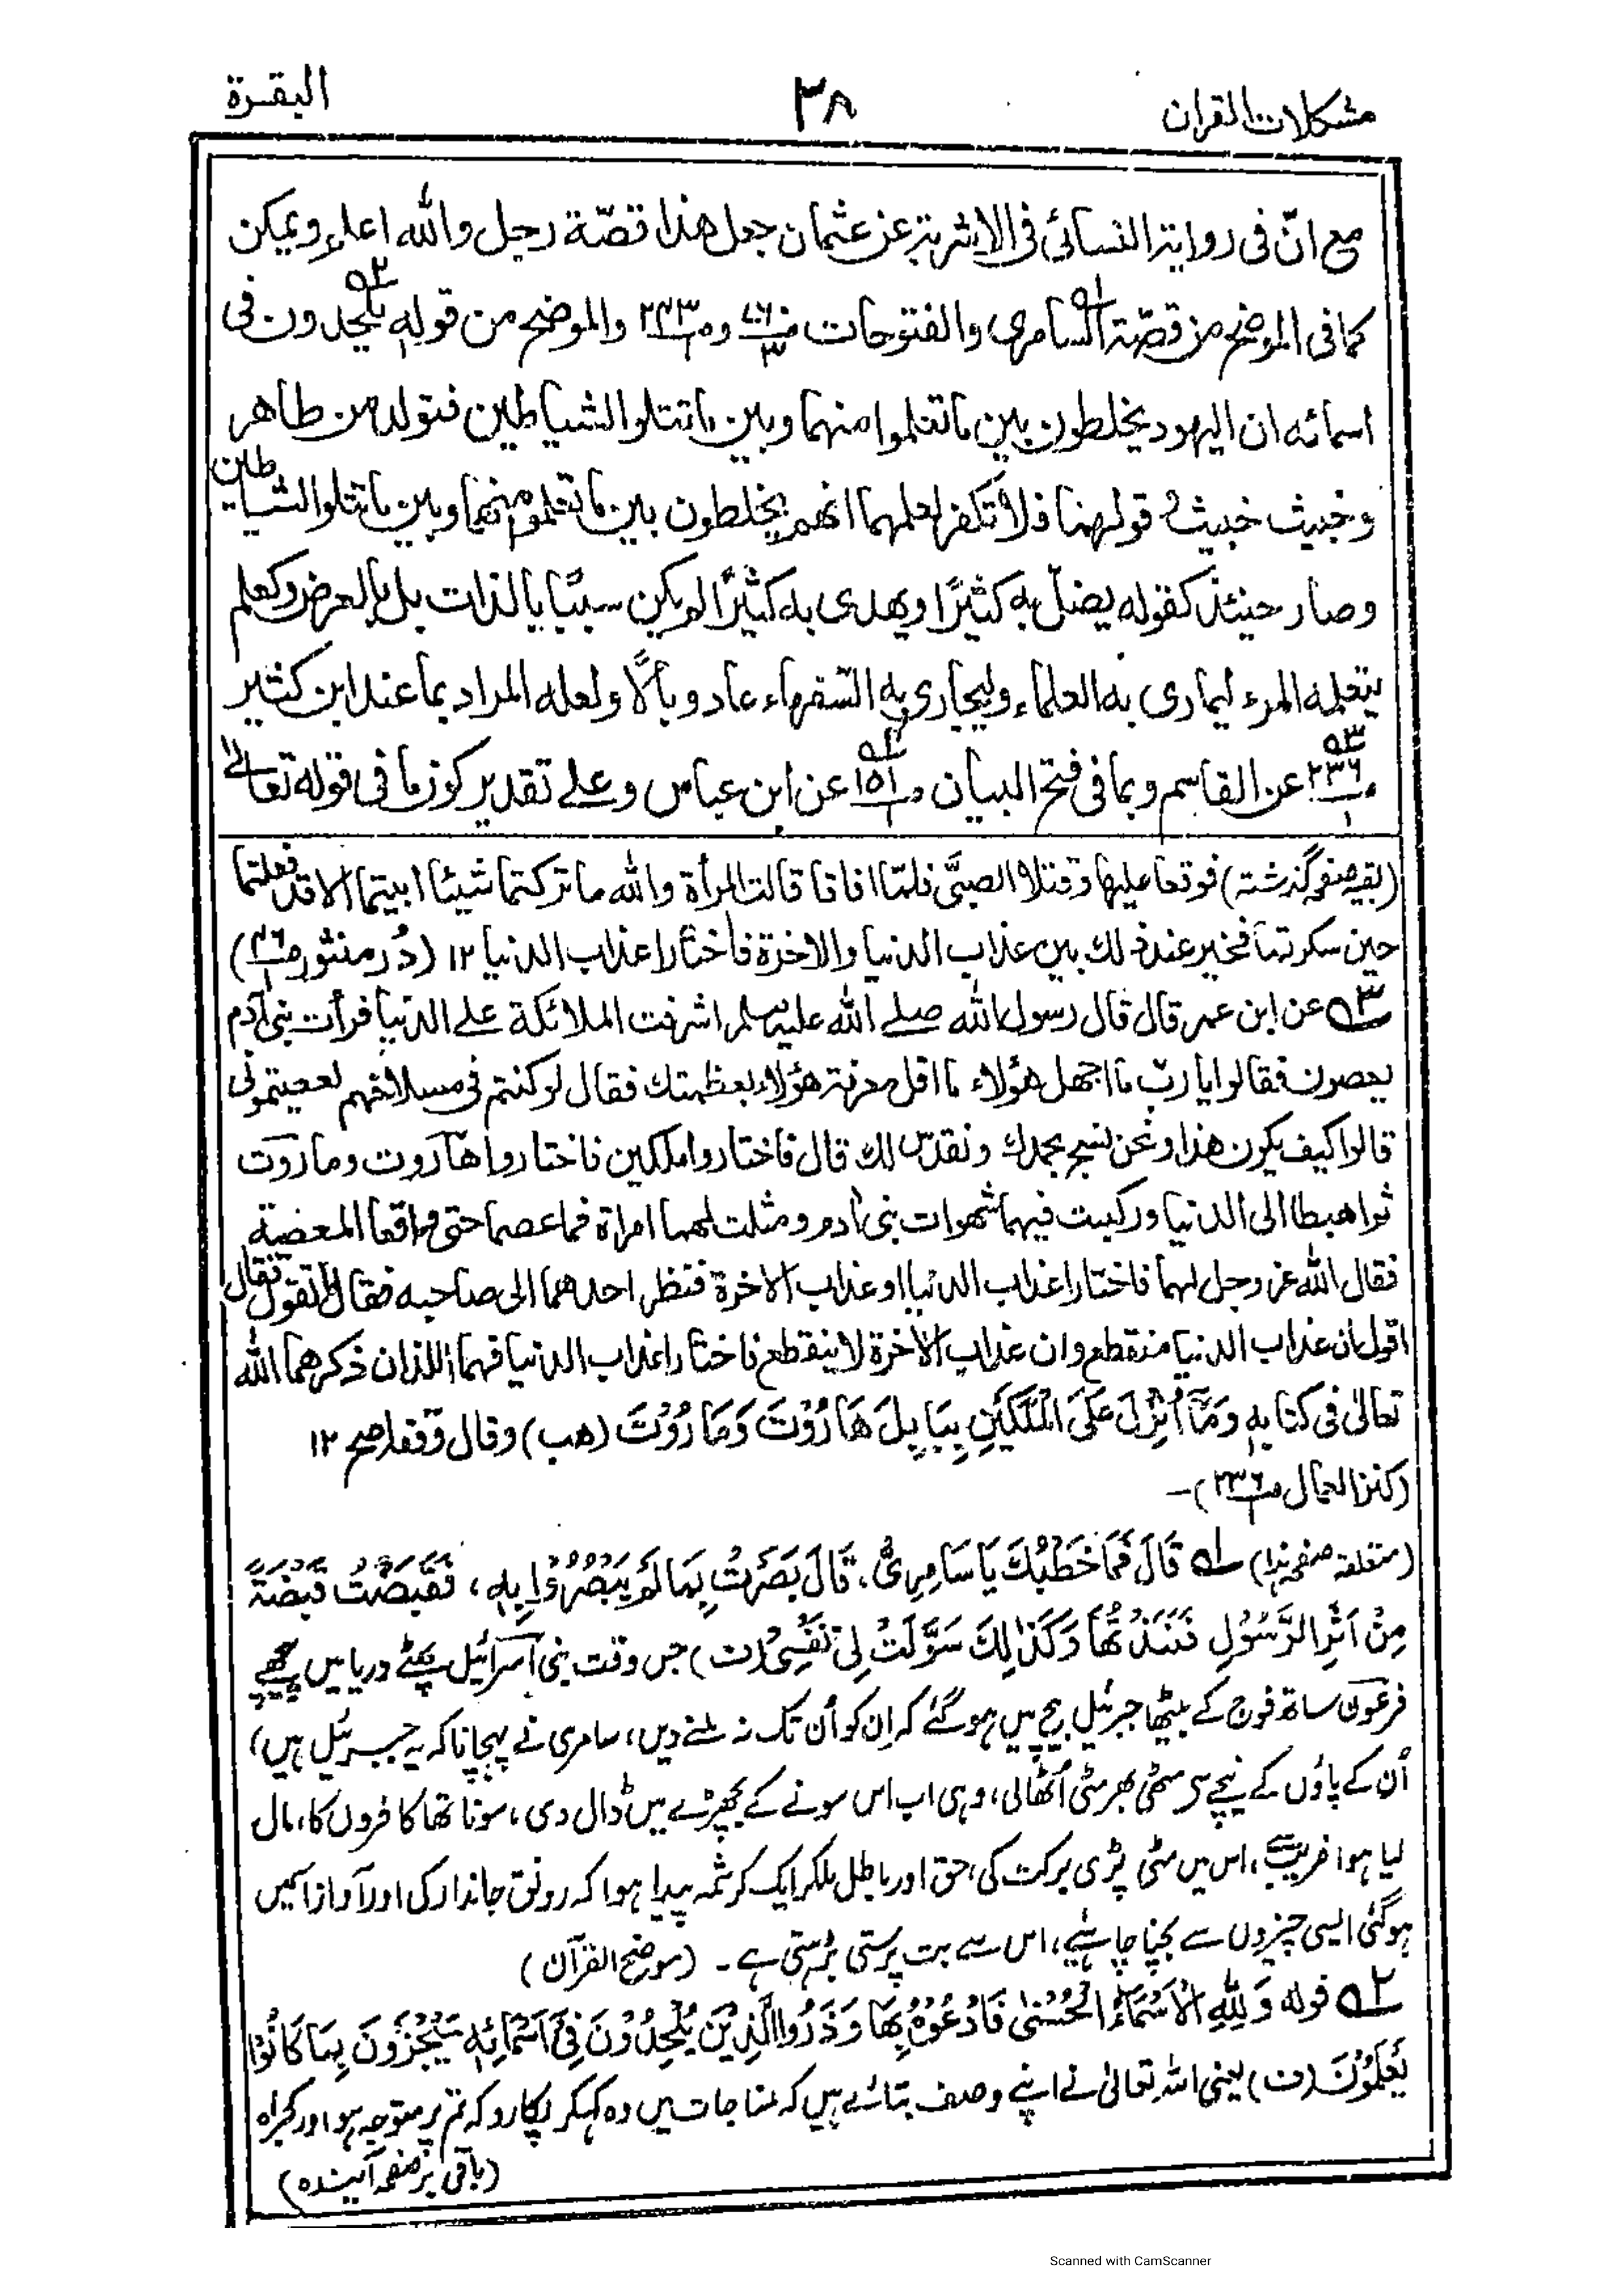 مشكلات القران
٣٨
البقرة
مع انّ فى رواية النسائى فى الاشربة عن عثمان جعل هذا قصّة رجل والله اعلم ويمكن
كما فى الموضح من قصّة السامرى والفتوحات والموضح من قوله يلحدون فى
اسمائه ان اليهود يخلطون بين ما تعلموا منهما وبين ما تتلوا الشياطين فتولد من طاهر
وخبيث خبيث قولهما فلا تكفر لعلمهما انهم يخلطون بين ما تعلموا منهما وبين ما تتلوا الشياطين
وصار حينئذ كقوله يضل به كثيرًا ويهدى به كثيرًا لم يكن سببًا بالذات بل بالعرض وكعلم
يتعلمه المرء ليمارى به العلماء وليجارى به السّفهاء عاد وبالًا ولعله المراد بما عند ابن كثير
٢٣٦/١ عن القاسم وبما فى فتح البيان ١٥١/١ عن ابن عباس وعلى تقدير كون ما فى قوله تعالى
(بقيه صفحه گذشته) فوقعا عليها وقتلا الصبىّ فلمّا افاقا قالت المرأة والله ما تركتما شيئا ابيتما الا قد فعلتما
حين سكرتما فخير عند ذلك بين عذاب الدنيا والاخرة فاختارا عذاب الدنيا ١٢ (دُر منثور)
٣ عن ابن عمر قال قال رسول الله صلى الله عليه وسلم اشرفت الملائكة على الدنيا فرأت بنى آدم
يعصون فقالوا يا ربّ ما اجهل هؤلاء ما اقل معرفة هؤلاء بعظمتك فقال لو كنتم فى مسلاخهم لعصيتمونى
قالوا كيف يكون هذا ونحن نسبح بحمدك ونقدّس لك قال فاختاروا ملكين فاختاروا هاروت وماروت
ثم اهبطا الى الدنيا وركبت فيهما شهوات بنى آدم ومثلت لهما امراة فما عصما حتى واقعا المعصية
فقال الله عز وجل لهما فاختارا عذاب الدنيا او عذاب الاخرة فنظر احدهما الى صاحبه فقال ما تقول فقال
اقول ان عذاب الدنيا منقطع وان عذاب الاخرة لا ينقطع فاختارا عذاب الدنيا فهما اللذان ذكرهما الله
تعالىٰ فى كتابه وَمَآ اُنْزِلَ عَلَى الْمَلَكَيْنِ بِبَابِلَ هَارُوْتَ وَمَارُوْتَ (هب) وقال وقفه اصح ١٢
(كنز العمال ٢٣٦/١)—
(متعلقه صفحه هذا) ١ قَالَ فَمَا خَطْبُكَ يَا سَامِرِىُّ، قَالَ بَصُرْتُ بِمَا لَمْ يَبْصُرُوْا بِهٖ، فَقَبَضْتُ قَبْضَةً
مِنْ اَثَرِ الرَّسُوْلِ فَنَبَذْتُهَا وَكَذٰلِكَ سَوَّلَتْ لِىْ نَفْسِىْ (ت) جس وقت بنى اسرائیل پھٹے دریا میں پیٹھے پیچھے
فرعون ساتھ فوج کے بیٹھا جبرئیل بیچ میں ہو گئے کہ اِن کو اُن تک نہ ملنے دیں، سامری نے پہچانا کہ یہ جبرئیل ہیں،
اُن کے پاؤں کے نیچے سے مٹھی بھر مٹی اُٹھالی، وہی اب اس سونے کے بچھڑے میں ڈال دی، سونا تھا کافروں کا، مال
لیا ہوا فریب سے، اس میں مٹی پڑی برکت کی، حق اور باطل ملکر ایک کرشمہ پیدا ہوا کہ رونق جاندار کی اور آواز اسمیں
ہو گئی ایسی چیزوں سے بچنا چاہئیے، اس سے بت پرستی بڑھتی ہے۔ (موضح القرآن)
٢ قوله وَلِلّٰهِ الْاَسْمَآءُ الْحُسْنٰى فَادْعُوْهُ بِهَا وَذَرُوا الَّذِيْنَ يُلْحِدُوْنَ فِىْٓ اَسْمَآئِهٖ سَيُجْزَوْنَ بِمَا كَانُوْا
يَعْمَلُوْنَ (ت) یعنی اللہ تعالیٰ نے اپنے وصف بتائے ہیں کہ مناجات میں وہ کہکر پکارو کہ تم پر متوجہ ہو اور کجراہ
(باقی بر صفحہ آئیندہ)
Scanned with CamScanner